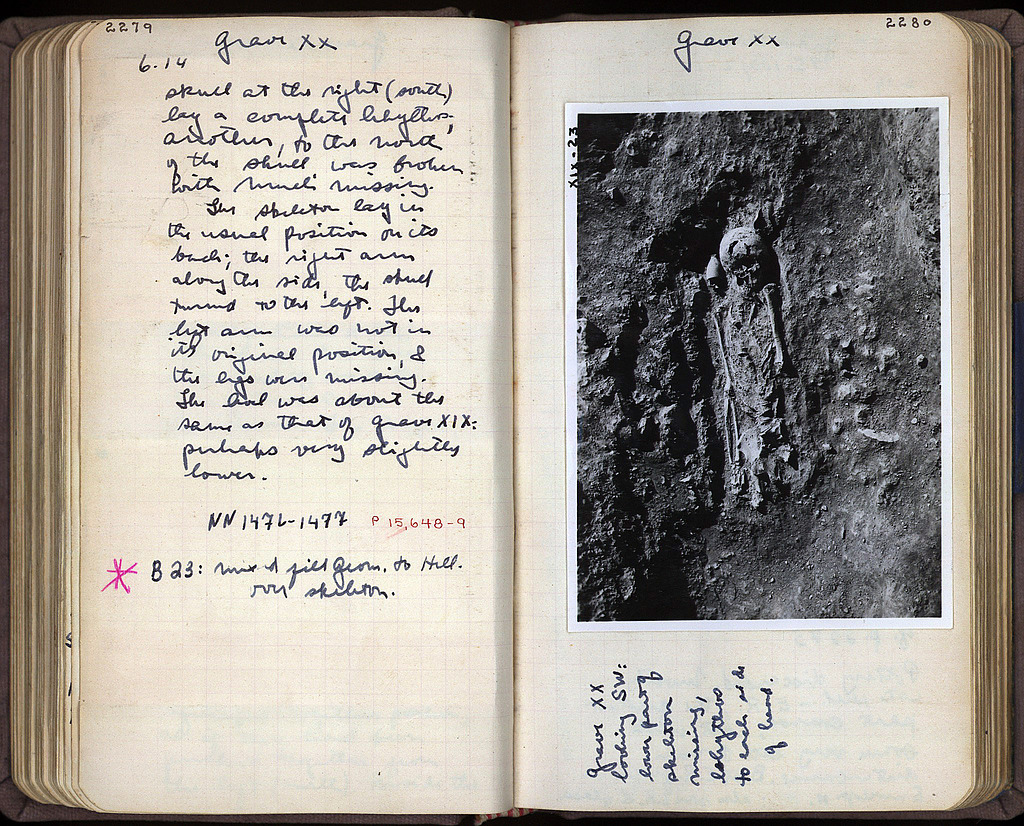 2279
Grave XX
6.14
skull at the right (south)
lay a complete lekythos;
another, to the north
of the skull was broken
with much missing.
The skeleton lay in
the usual position on its
back; the right arm
along the side, the skull
turned to the left. The
left arm was not in
its original position, &
the legs were missing.
The level was about the
same as that of grave XIX:
perhaps very slightly
lower.
NN 1476-1477 P 15,648-9
B 23: mixed fill Geom. to Hell.
over skeleton.
2280
Grave XX
XIX-23
Grave XX
looking SW:
lower part of
skeleton
missing,
lekythos
to each side
of head.